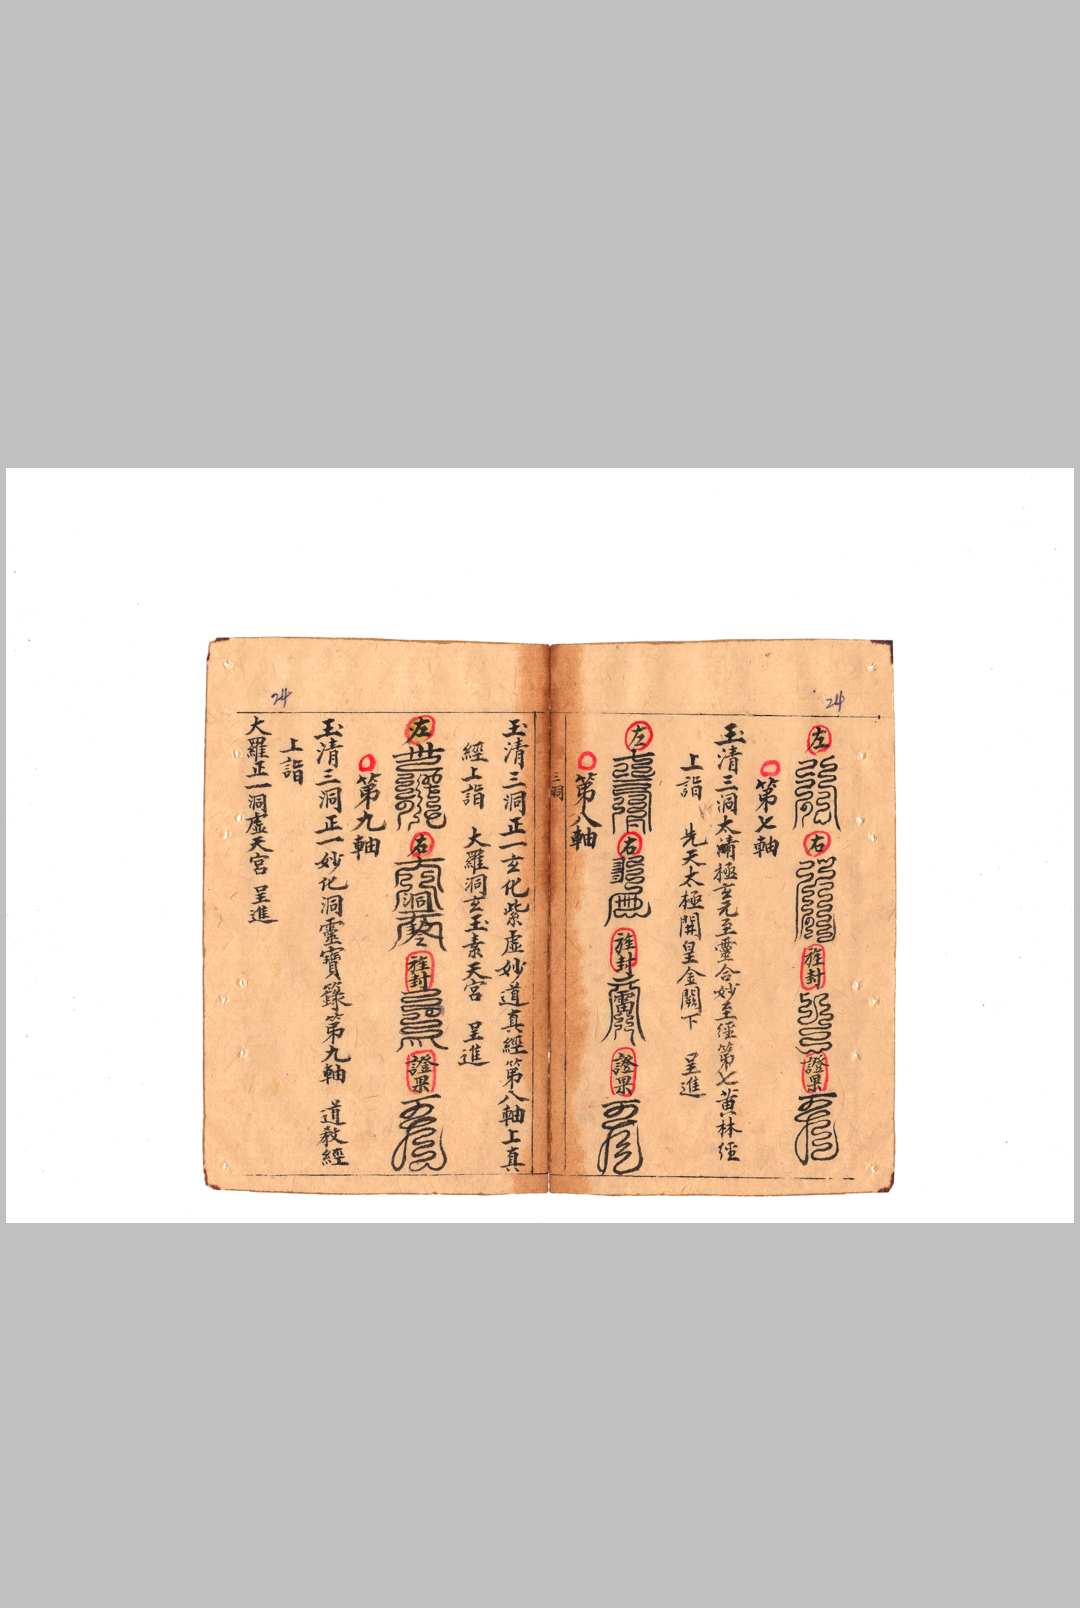 24
左
右
封
證果
第七軸
玉清三洞太清極玄元至靈合妙至經第七黃林經
上詣 先天太極開皇金闕下 呈進
左
右
封
證果
第八軸
三洞
24
玉清三洞正一玄化紫虛妙道真經第八軸上真
經上詣 大羅洞玄玉素天宮 呈進
左
右
封
證果
第九軸
玉清三洞正一妙化洞靈寶籙第九軸 道教經
上詣
大羅正一洞虛天宮 呈進